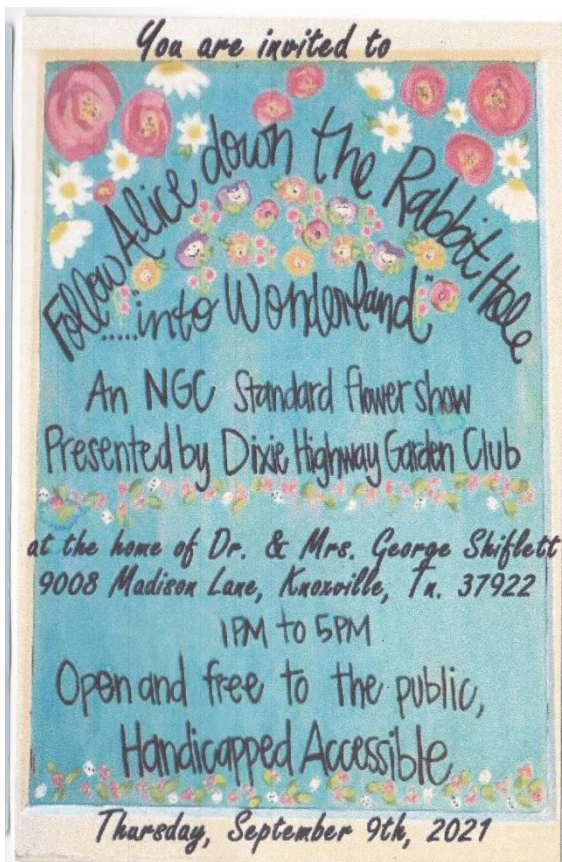 You are invited to
Follow Alice down the Rabbit Hole
.....into Wonderland
An NGC Standard flower show
Presented by Dixie Highway Garden Club
at the home of Dr. & Mrs. George Shiflett
9008 Madison Lane, Knoxville, Tn. 37922
1PM to 5PM
Open and free to the public,
Handicapped Accessible
Thursday, September 9th, 2021